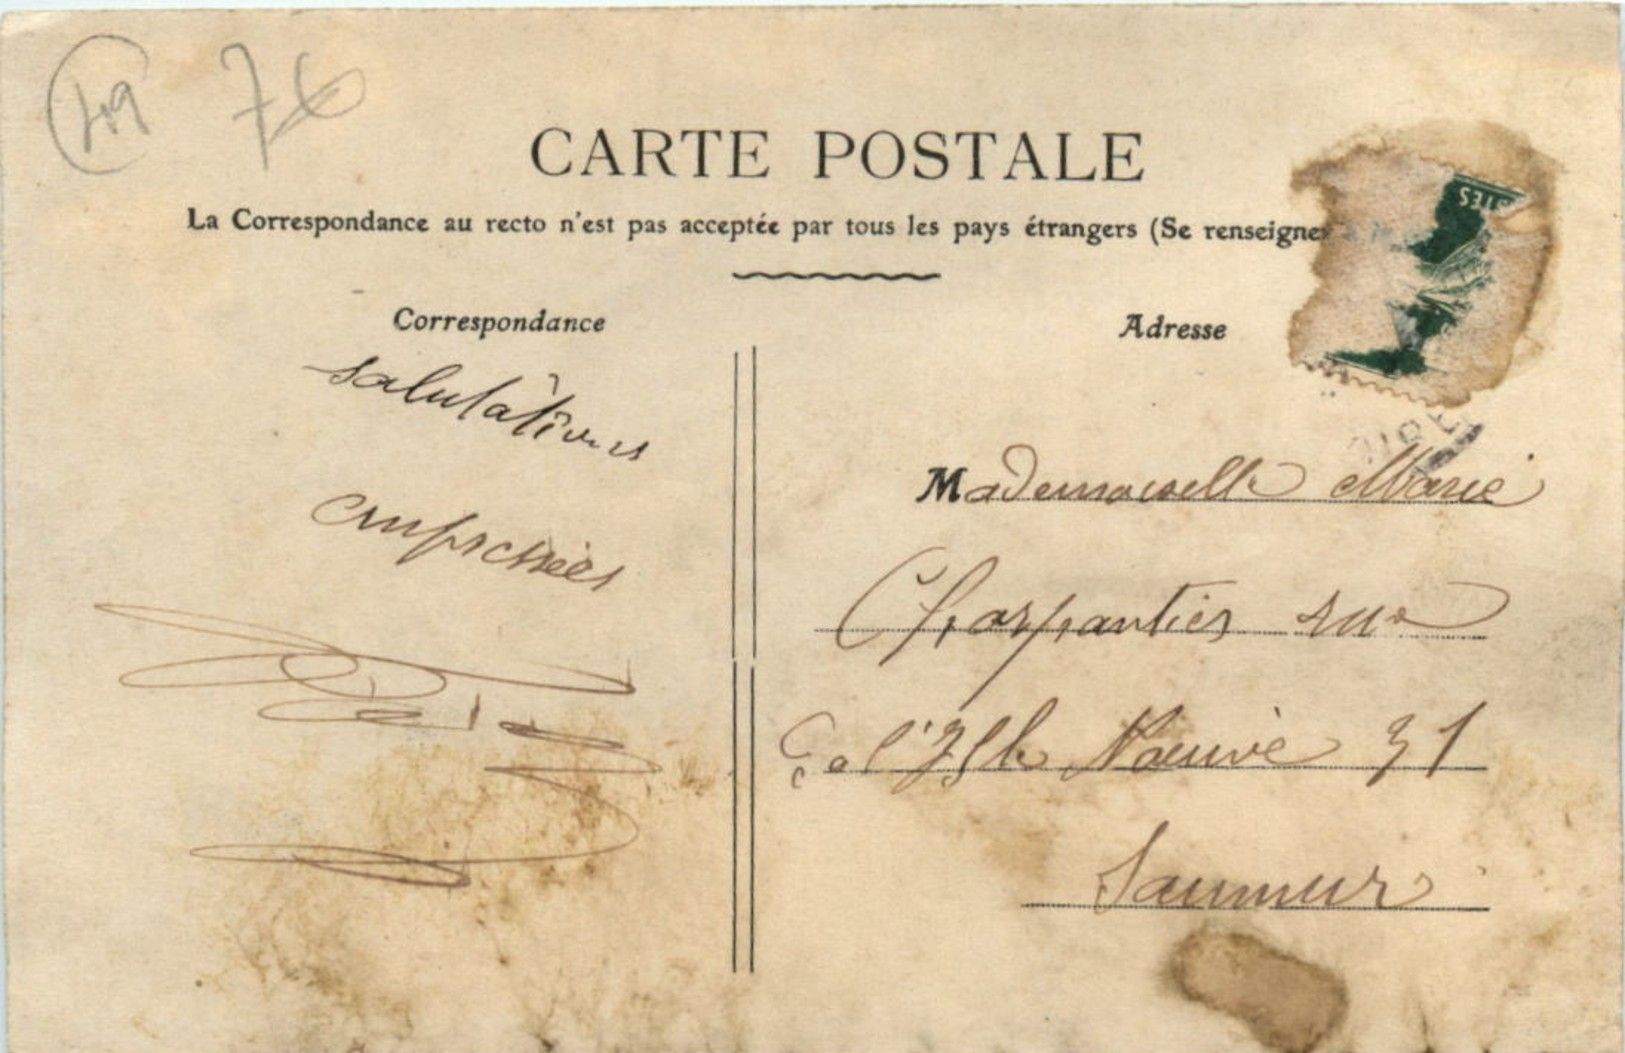 76
CARTE POSTALE
La Correspondance au recto n'est pas acceptée par tous les pays étrangers (Se renseigner
Correspondance
Adresse
salutations
empressées
Mademoiselle Marie
Charpantier rue
de l'Isle Neuve 31
Saumur